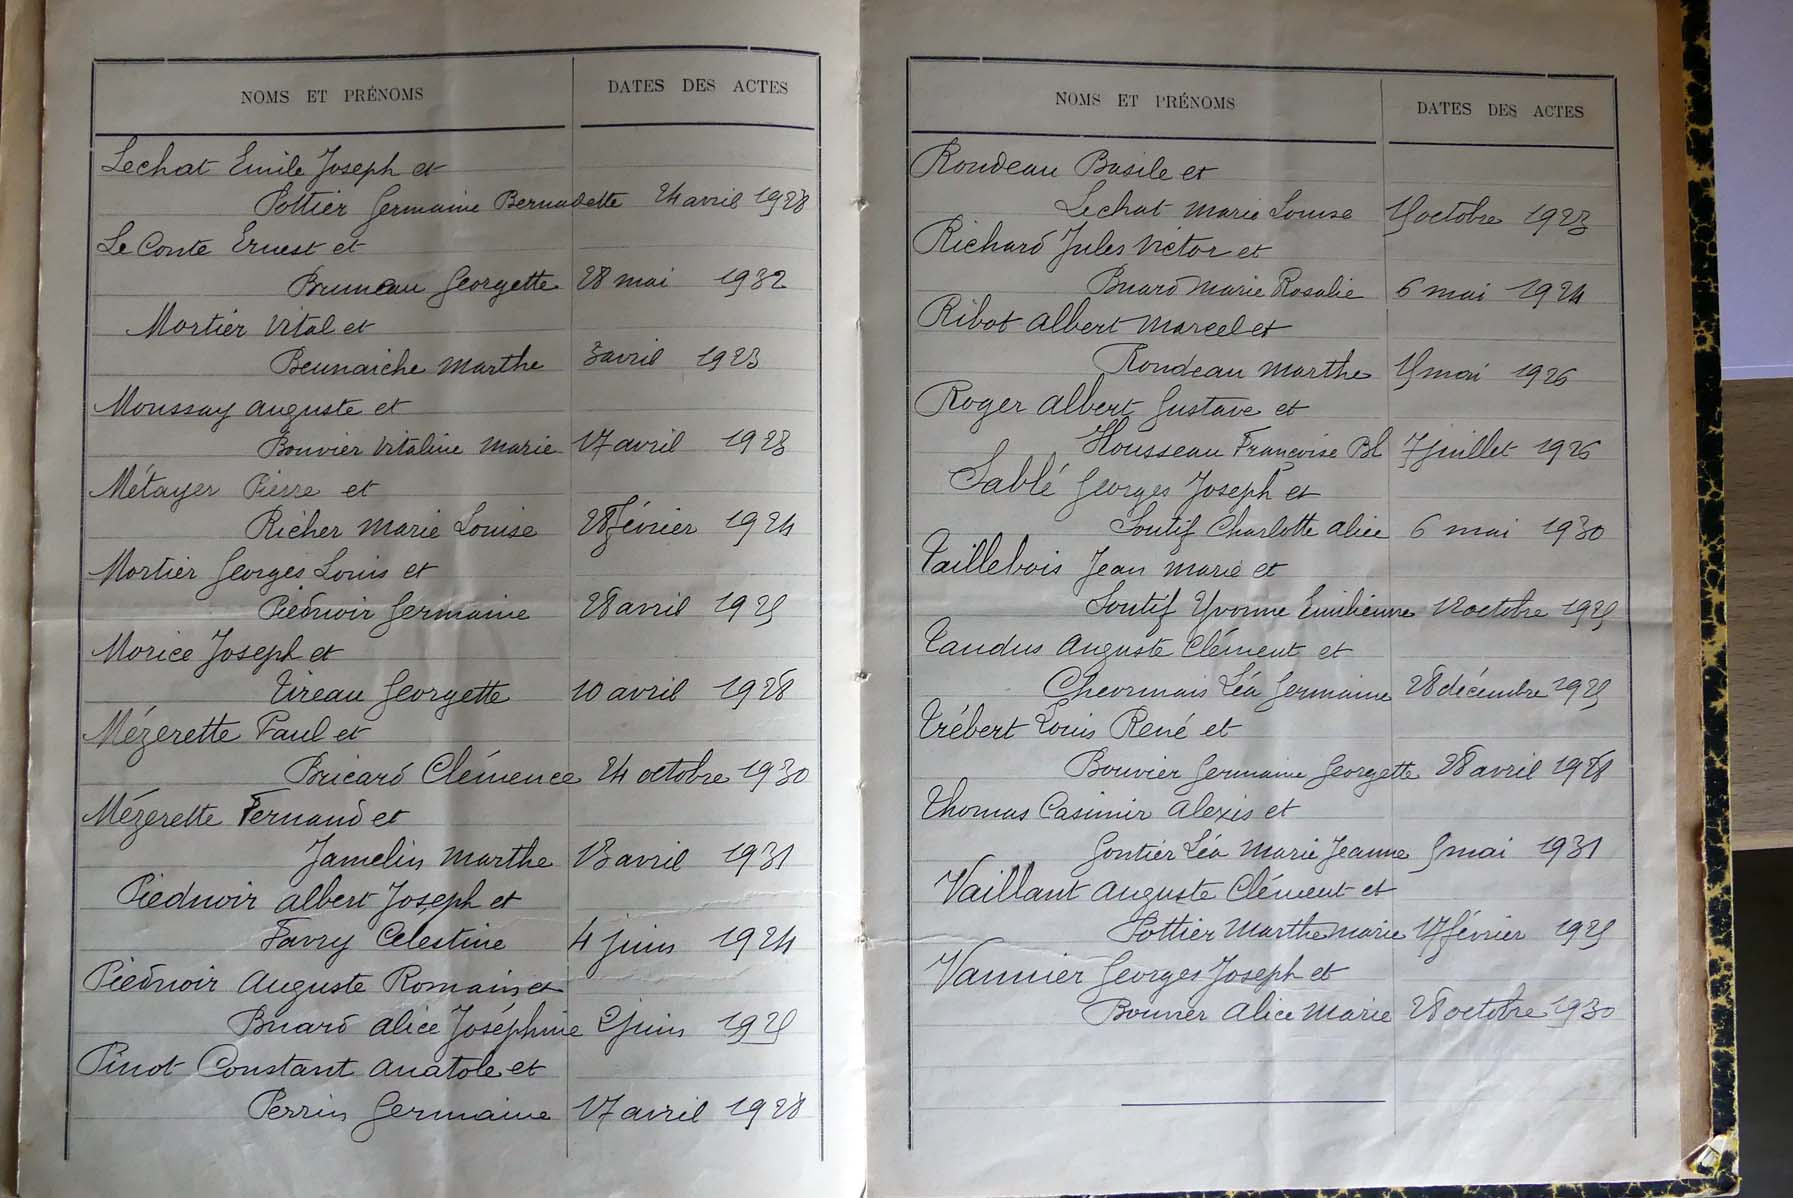 NOMS ET PRÉNOMS DATES DES ACTES
Lechat Emile Joseph et
Pottier Germaine Bernadette 24 avril 1928
Le Conte Ernest et
Bruneau Georgette 28 mai 1932
Mortier Vital et
Beunaiche Marthe 3 avril 1923
Moussay Auguste et
Bouvier Vitaline Marie 17 avril 1923
Métayer Pierre et
Richer Marie Louise 28 février 1924
Mortier Georges Louis et
Piednoir Germaine 28 avril 1925
Morice Joseph et
Tireau Georgette 10 avril 1928
Mézerette Paul et
Bricard Clémence 24 octobre 1930
Mézerette Fernand et
Jamelin Marthe 13 avril 1931
Piednoir Albert Joseph et
Favry Celestine 4 juin 1924
Piednoir Auguste Romain et
Buard Alice Joséphine 2 juin 1925
Pinot Constant Anatole et
Perrin Germaine 17 avril 1928
NOMS ET PRÉNOMS DATES DES ACTES
Rondeau Basile et
Lechat Marie Louise octobre 1923
Richard Jules Victor et
Buard Marie Rosalie 6 mai 1924
Ribot Albert Marcel et
Rondeau Marthe mai 1926
Roger Albert Gustave et
Housseau Françoise Bl 7 juillet 1926
Sablé Georges Joseph et
Soutif Charlotte Alice 6 mai 1930
Taillebois Jean Marie et
Soutif Yvonne Emilienne 12 octobre 1925
Taudus Auguste Clément et
Léa Germaine 28 décembre 1925
Trébert Louis René et
Bouvier Germaine Georgette 28 avril 1928
Thomas Casimir Alexis et
Gontier Léa Marie Jeanne 5 mai 1931
Vaillant Auguste Clément et
Pottier Marthe Marie 17 février 1925
Vannier Georges Joseph et
Bouvier Alice Marie 28 octobre 1930